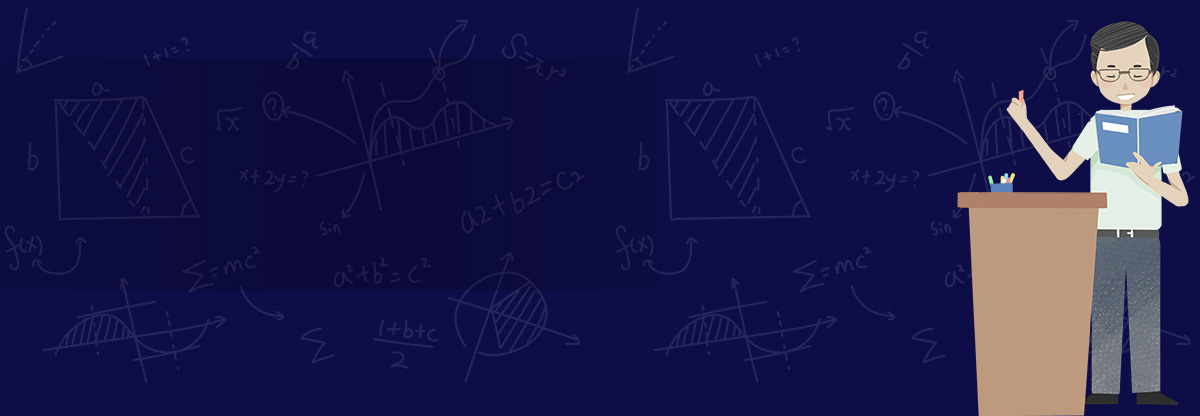 1+1=?
b\a
S=πr²
a
b
c
√x
?
x+2y=?
sin
a2+b2=c2
f(x)
Σ=mc²
a²+b²=c²
Σ
1+b+c
2
1+1=?
b\a
r²
a
b
c
√x
?
x+2y=?
sin
2
f(x)
Σ=mc²
a²
Σ